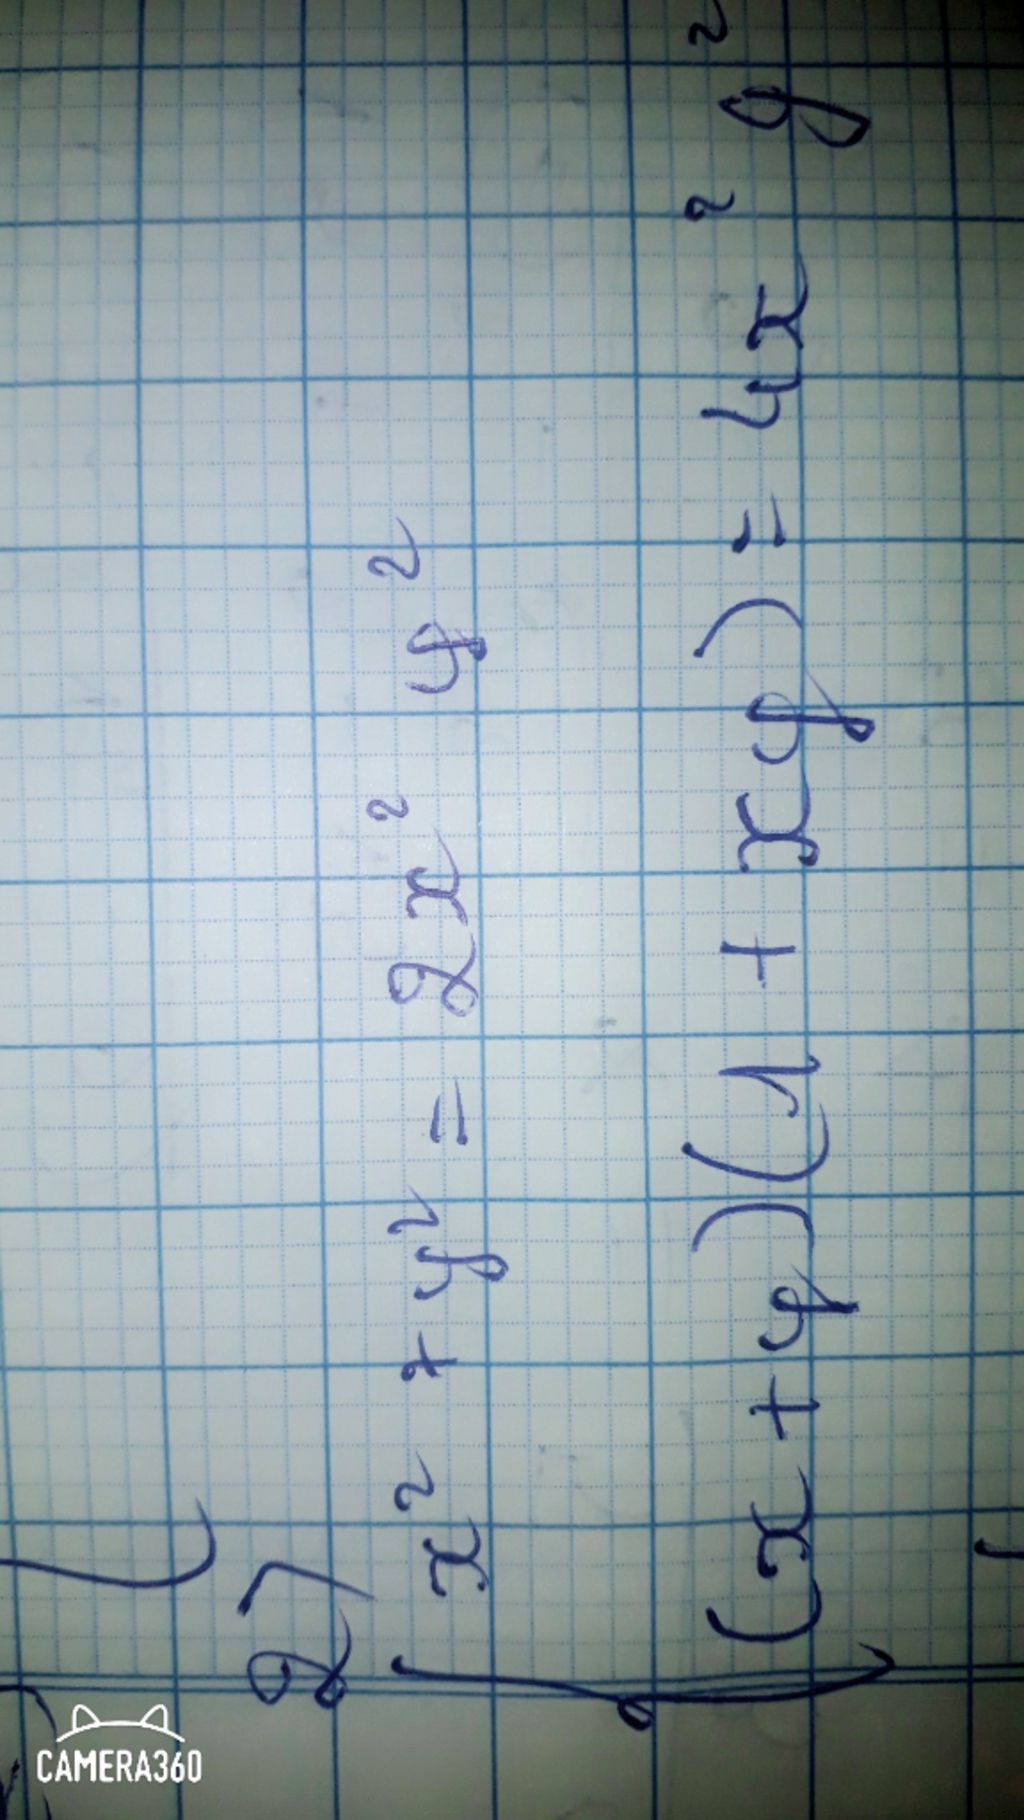 2)
x² + y² = 2x² y²
(x + y)(1 + xy) = 4x² y²
CAMERA360